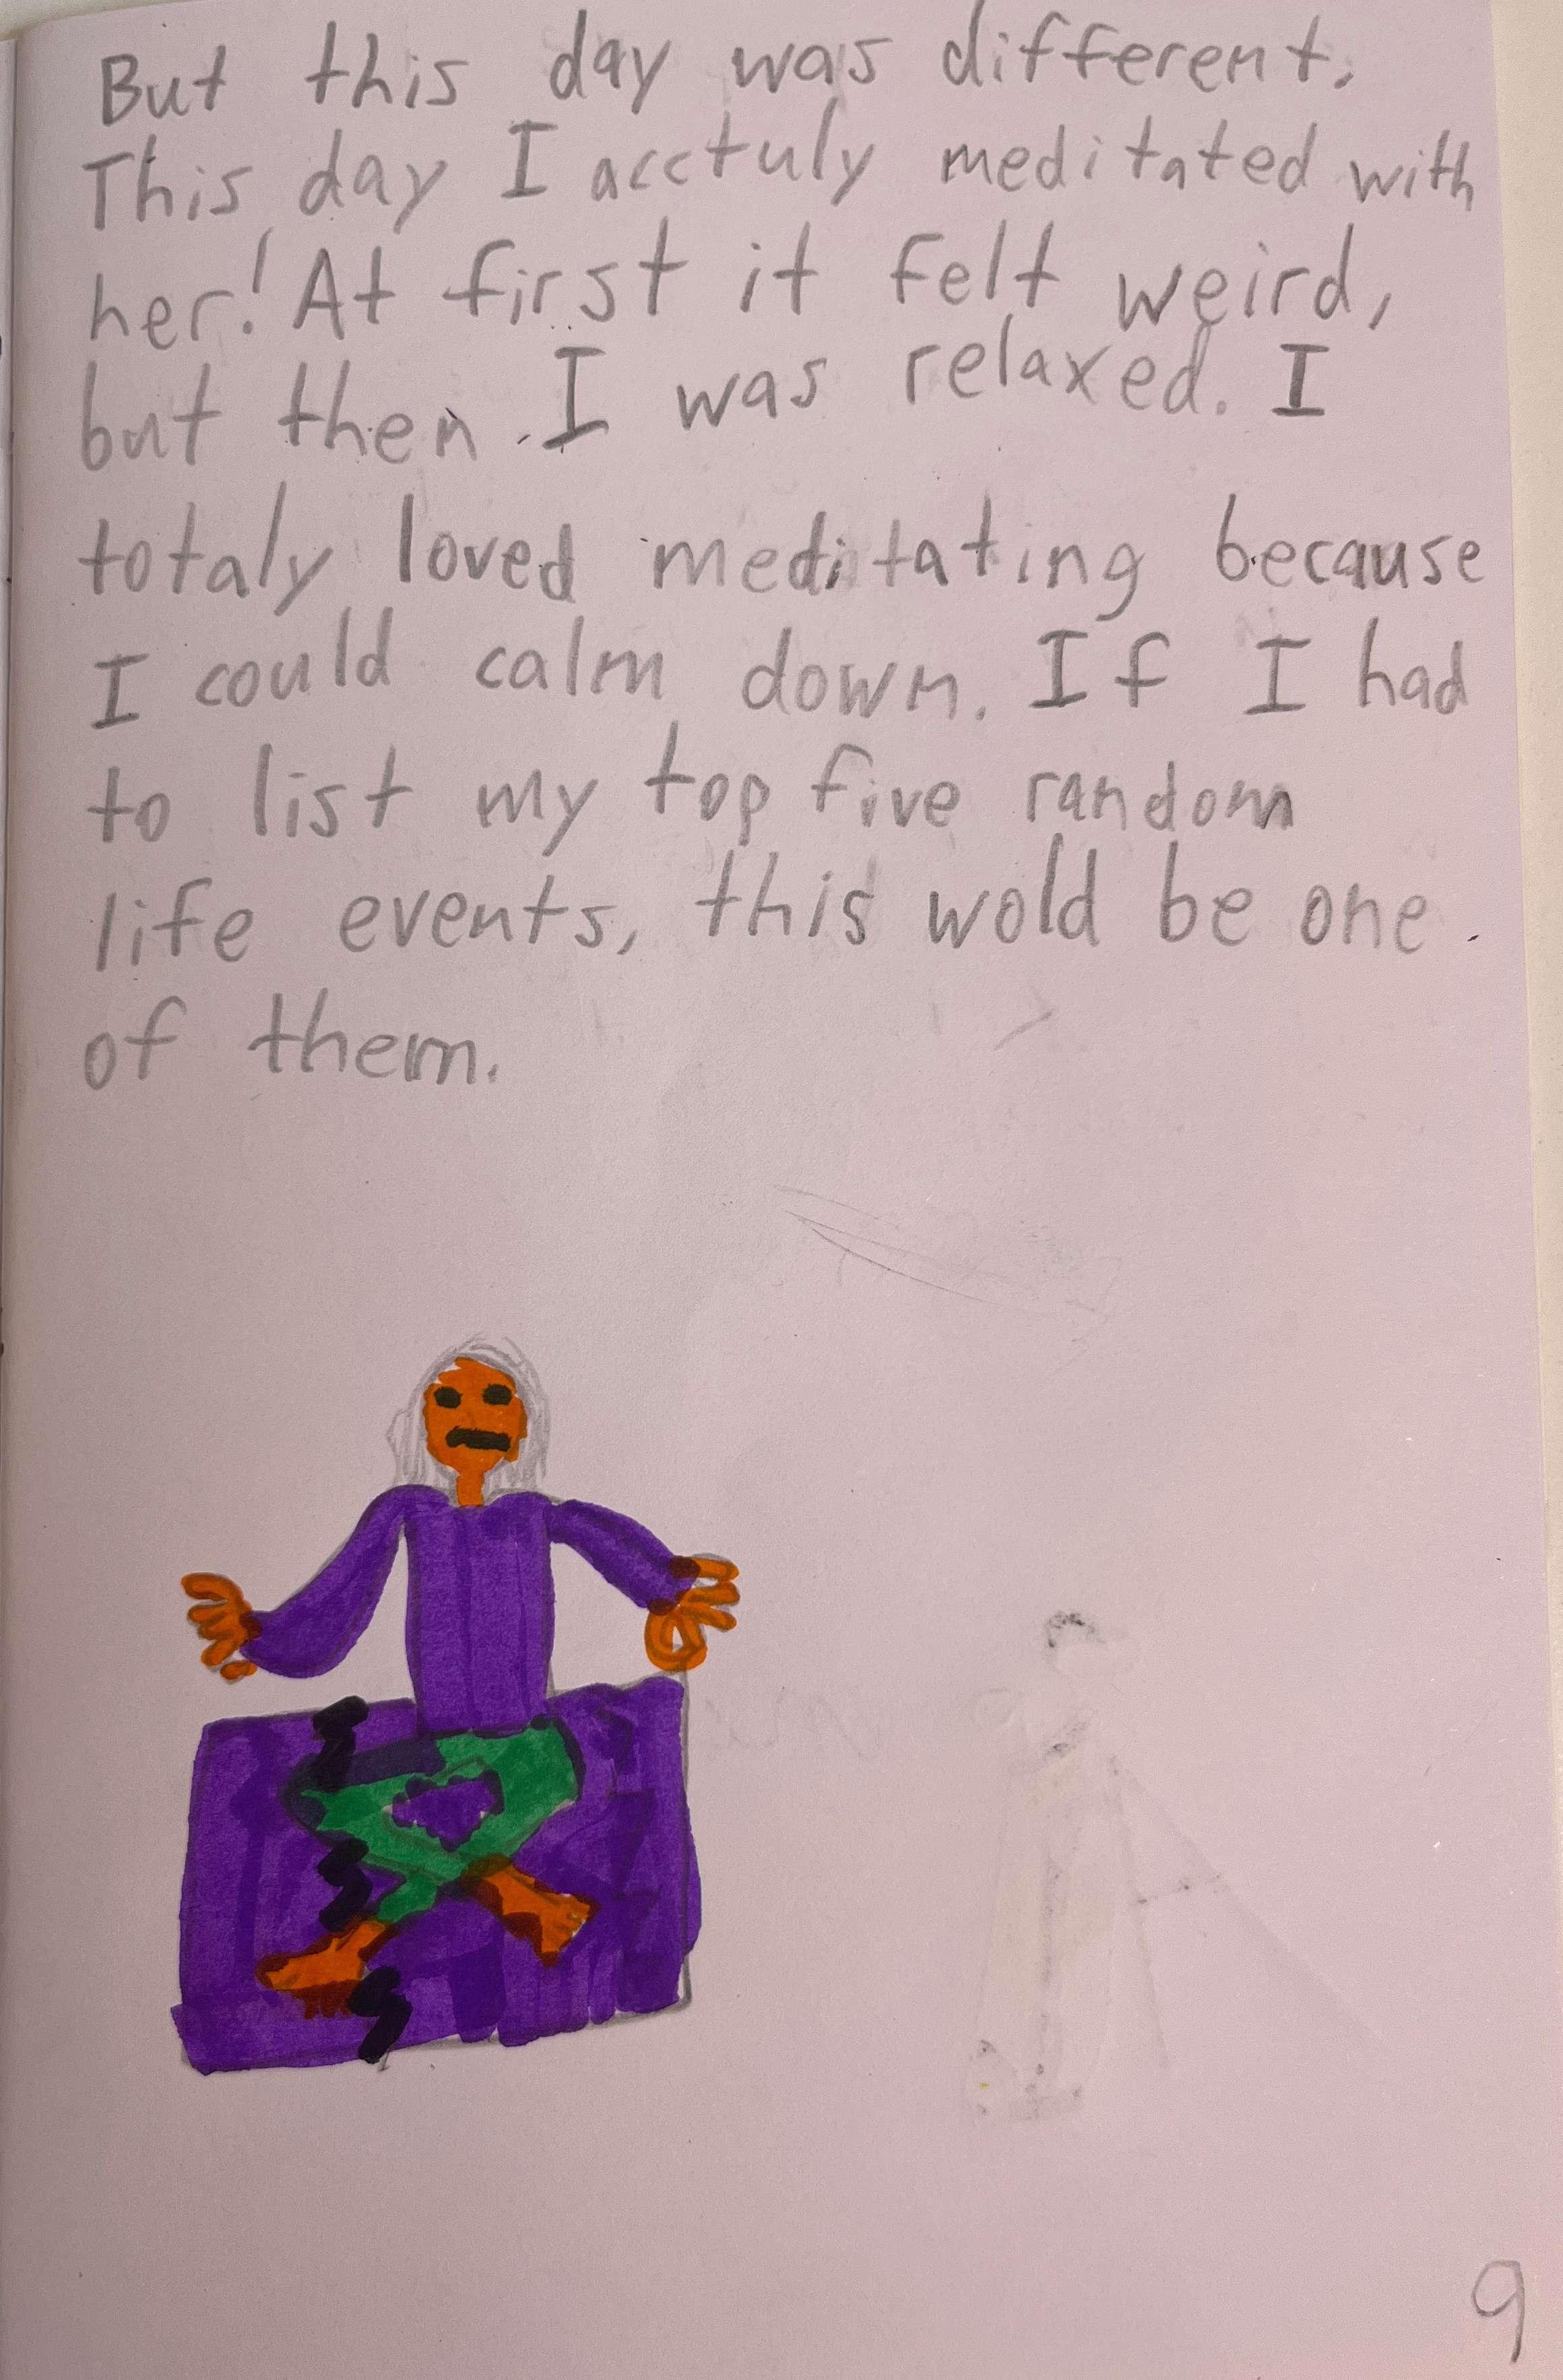 But this day was different.
This day I acctuly meditated with
her! At first it felt weird,
but then I was relaxed. I
totaly loved meditating because
I could calm down. If I had
to list my top five random
life events, this wold be one
of them.
9